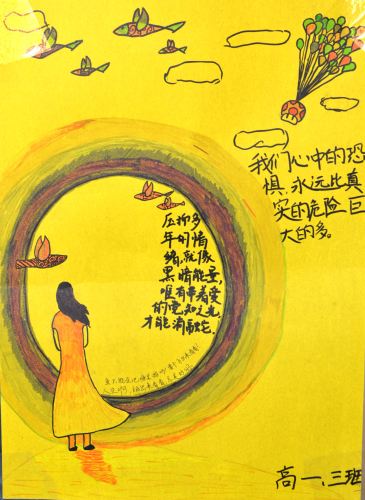 我们心中的恐
惧,永远比真
实的危险巨
大的多。
压抑多
年的情
绪,就像
黑暗能量,
唯有带着爱
的觉知之光,
才能消融它.
高一、三班